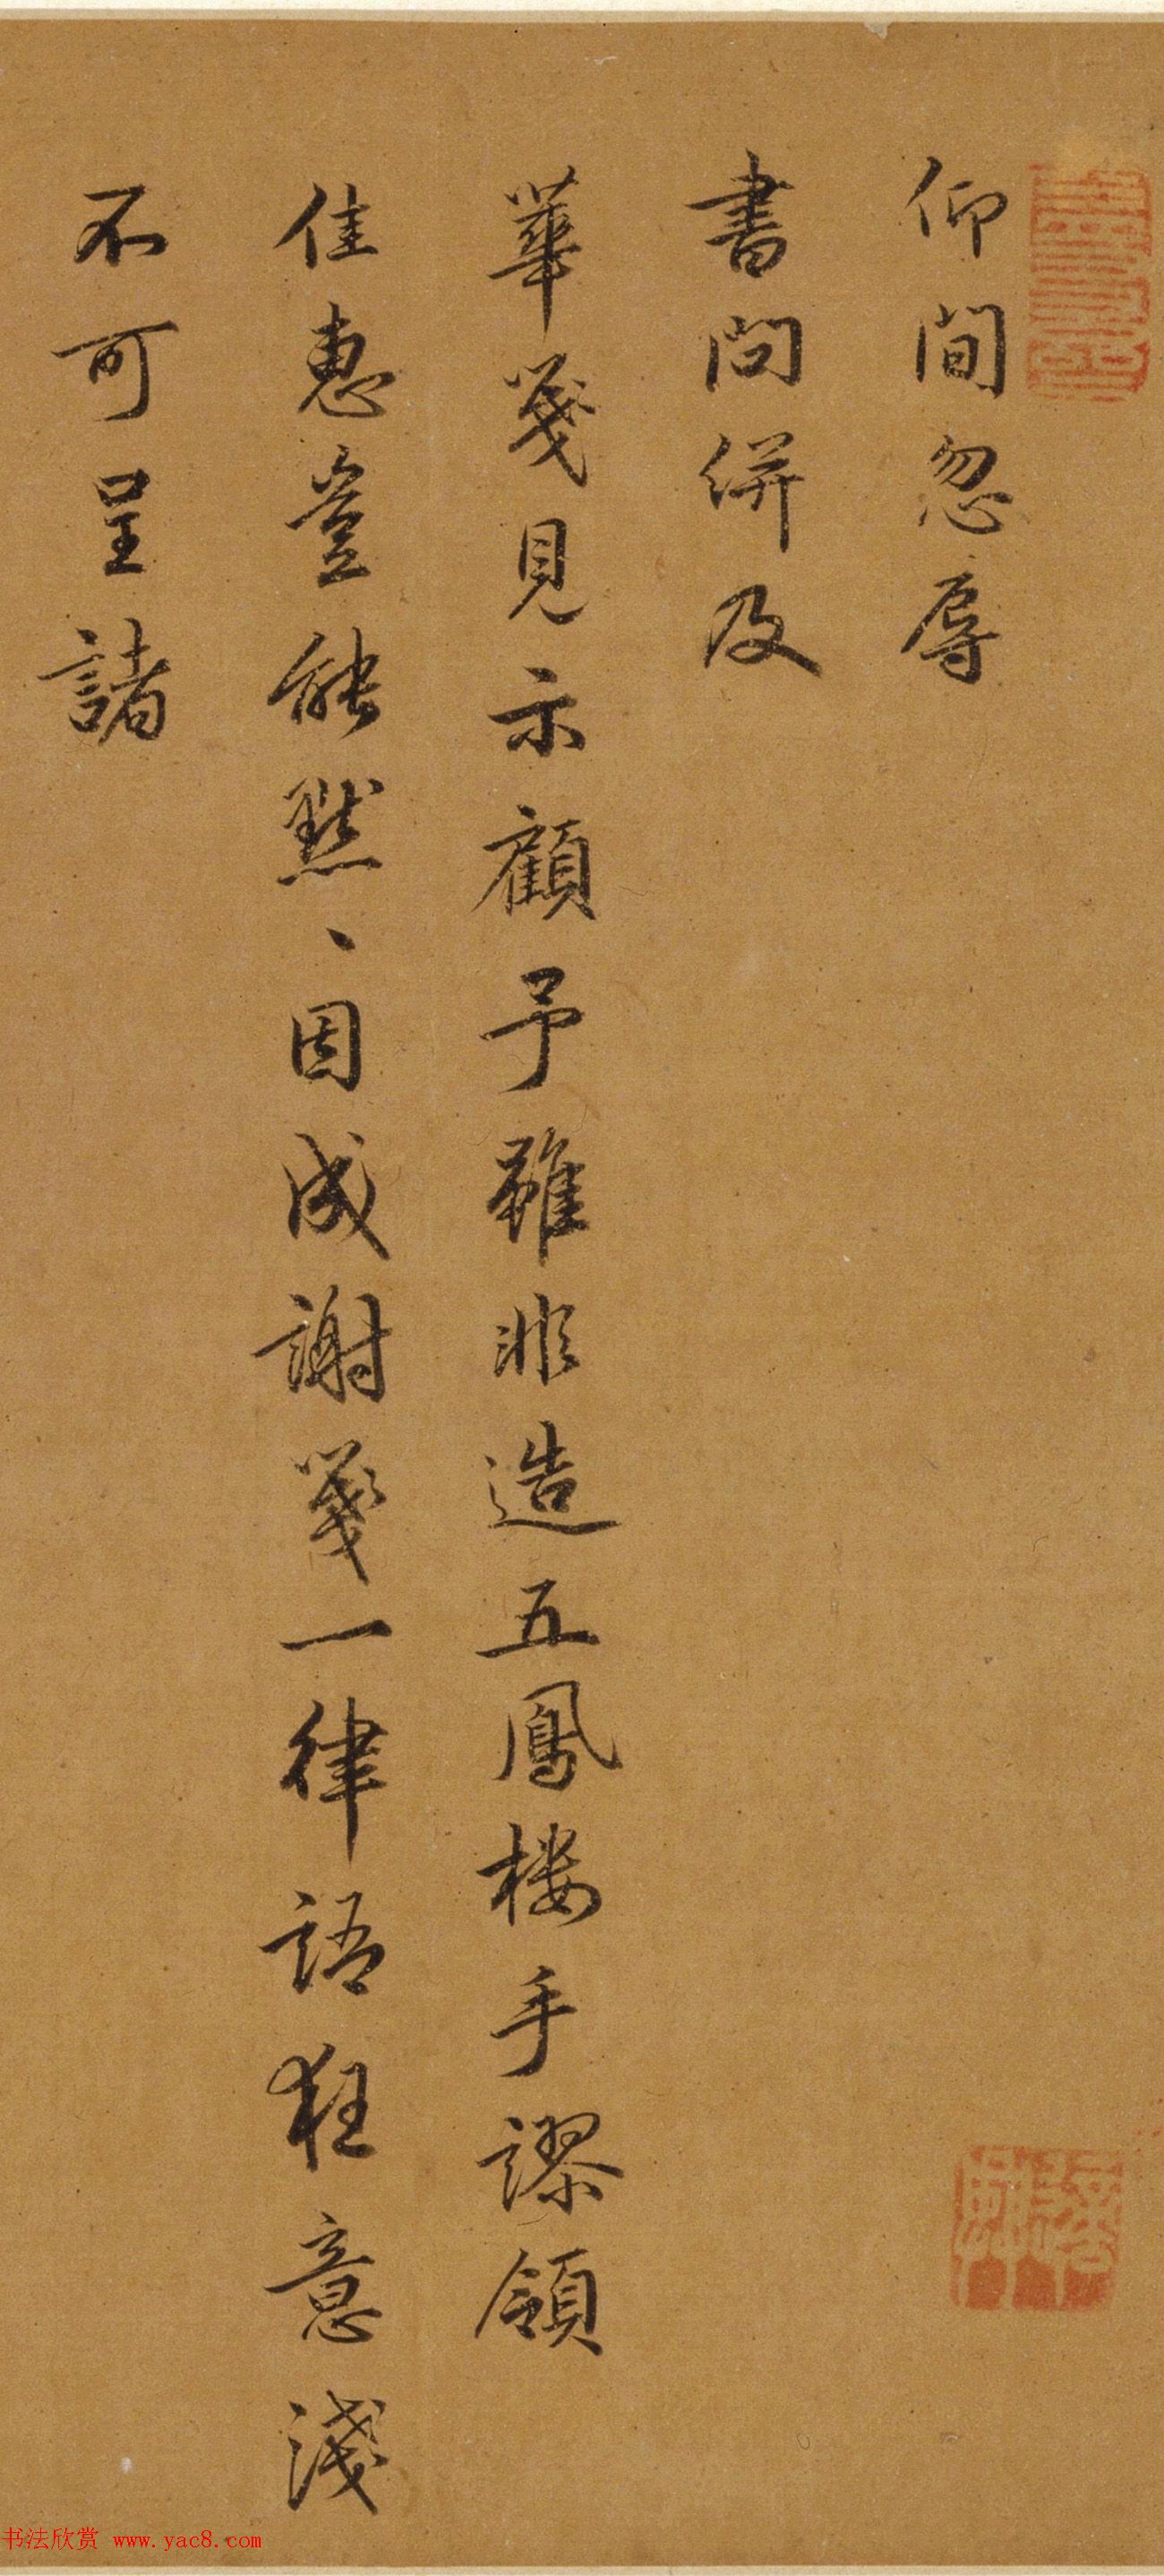 仰間忽辱
書問併及
華箋見示顧予雖非造五鳳楼手謬領
佳惠豈能默、因成謝箋一律語狂意淺
不可呈諸
书法欣赏 www.yac8.com